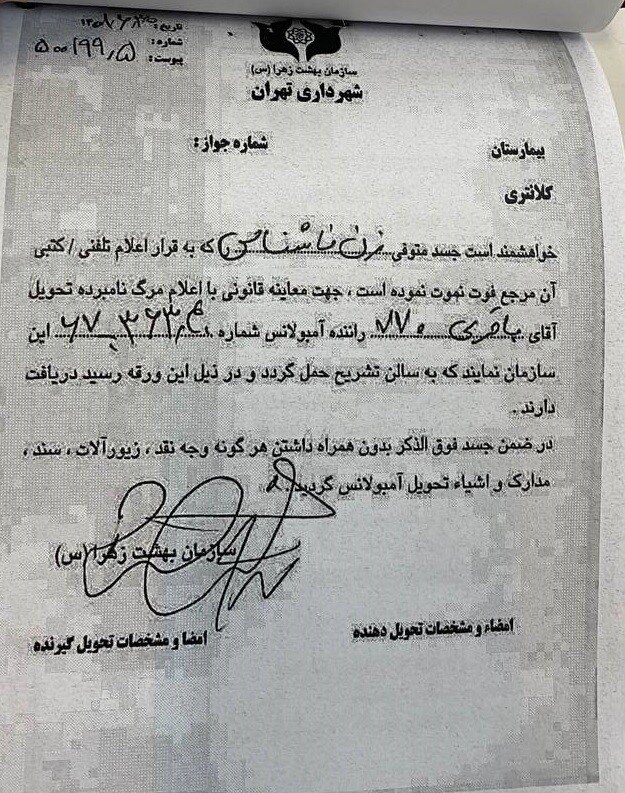 تاریخ:
شماره:
پیوست: ۵۰۰۱۹۹٫۵
سازمان بهشت زهرا (س)
شهرداری تهران
بیمارستان
شماره جواز :
کلانتری
خواهشمند است جسد متوفی زن ناشناس را که به قرار اعلام تلفنی / کتبی
آن مرجع فوت نموت نموده است ، جهت معاینه قانونی با اعلام مرگ نامبرده تحویل
آقای باقری ۸۷۰ راننده آمبولانس شماره این
سازمان نمایند که به سالن تشریح حمل گردد و در ذیل این ورقه رسید دریافت
دارند .
در ضمن جسد فوق الذکر بدون همراه داشتن هر گونه وجه نقد ، زیورآلات ، سند ،
مدارک و اشیاء تحویل آمبولانس گردید
سازمان بهشت زهرا (س)
امضاء و مشخصات تحویل دهنده
امضا و مشخصات تحویل گیرنده